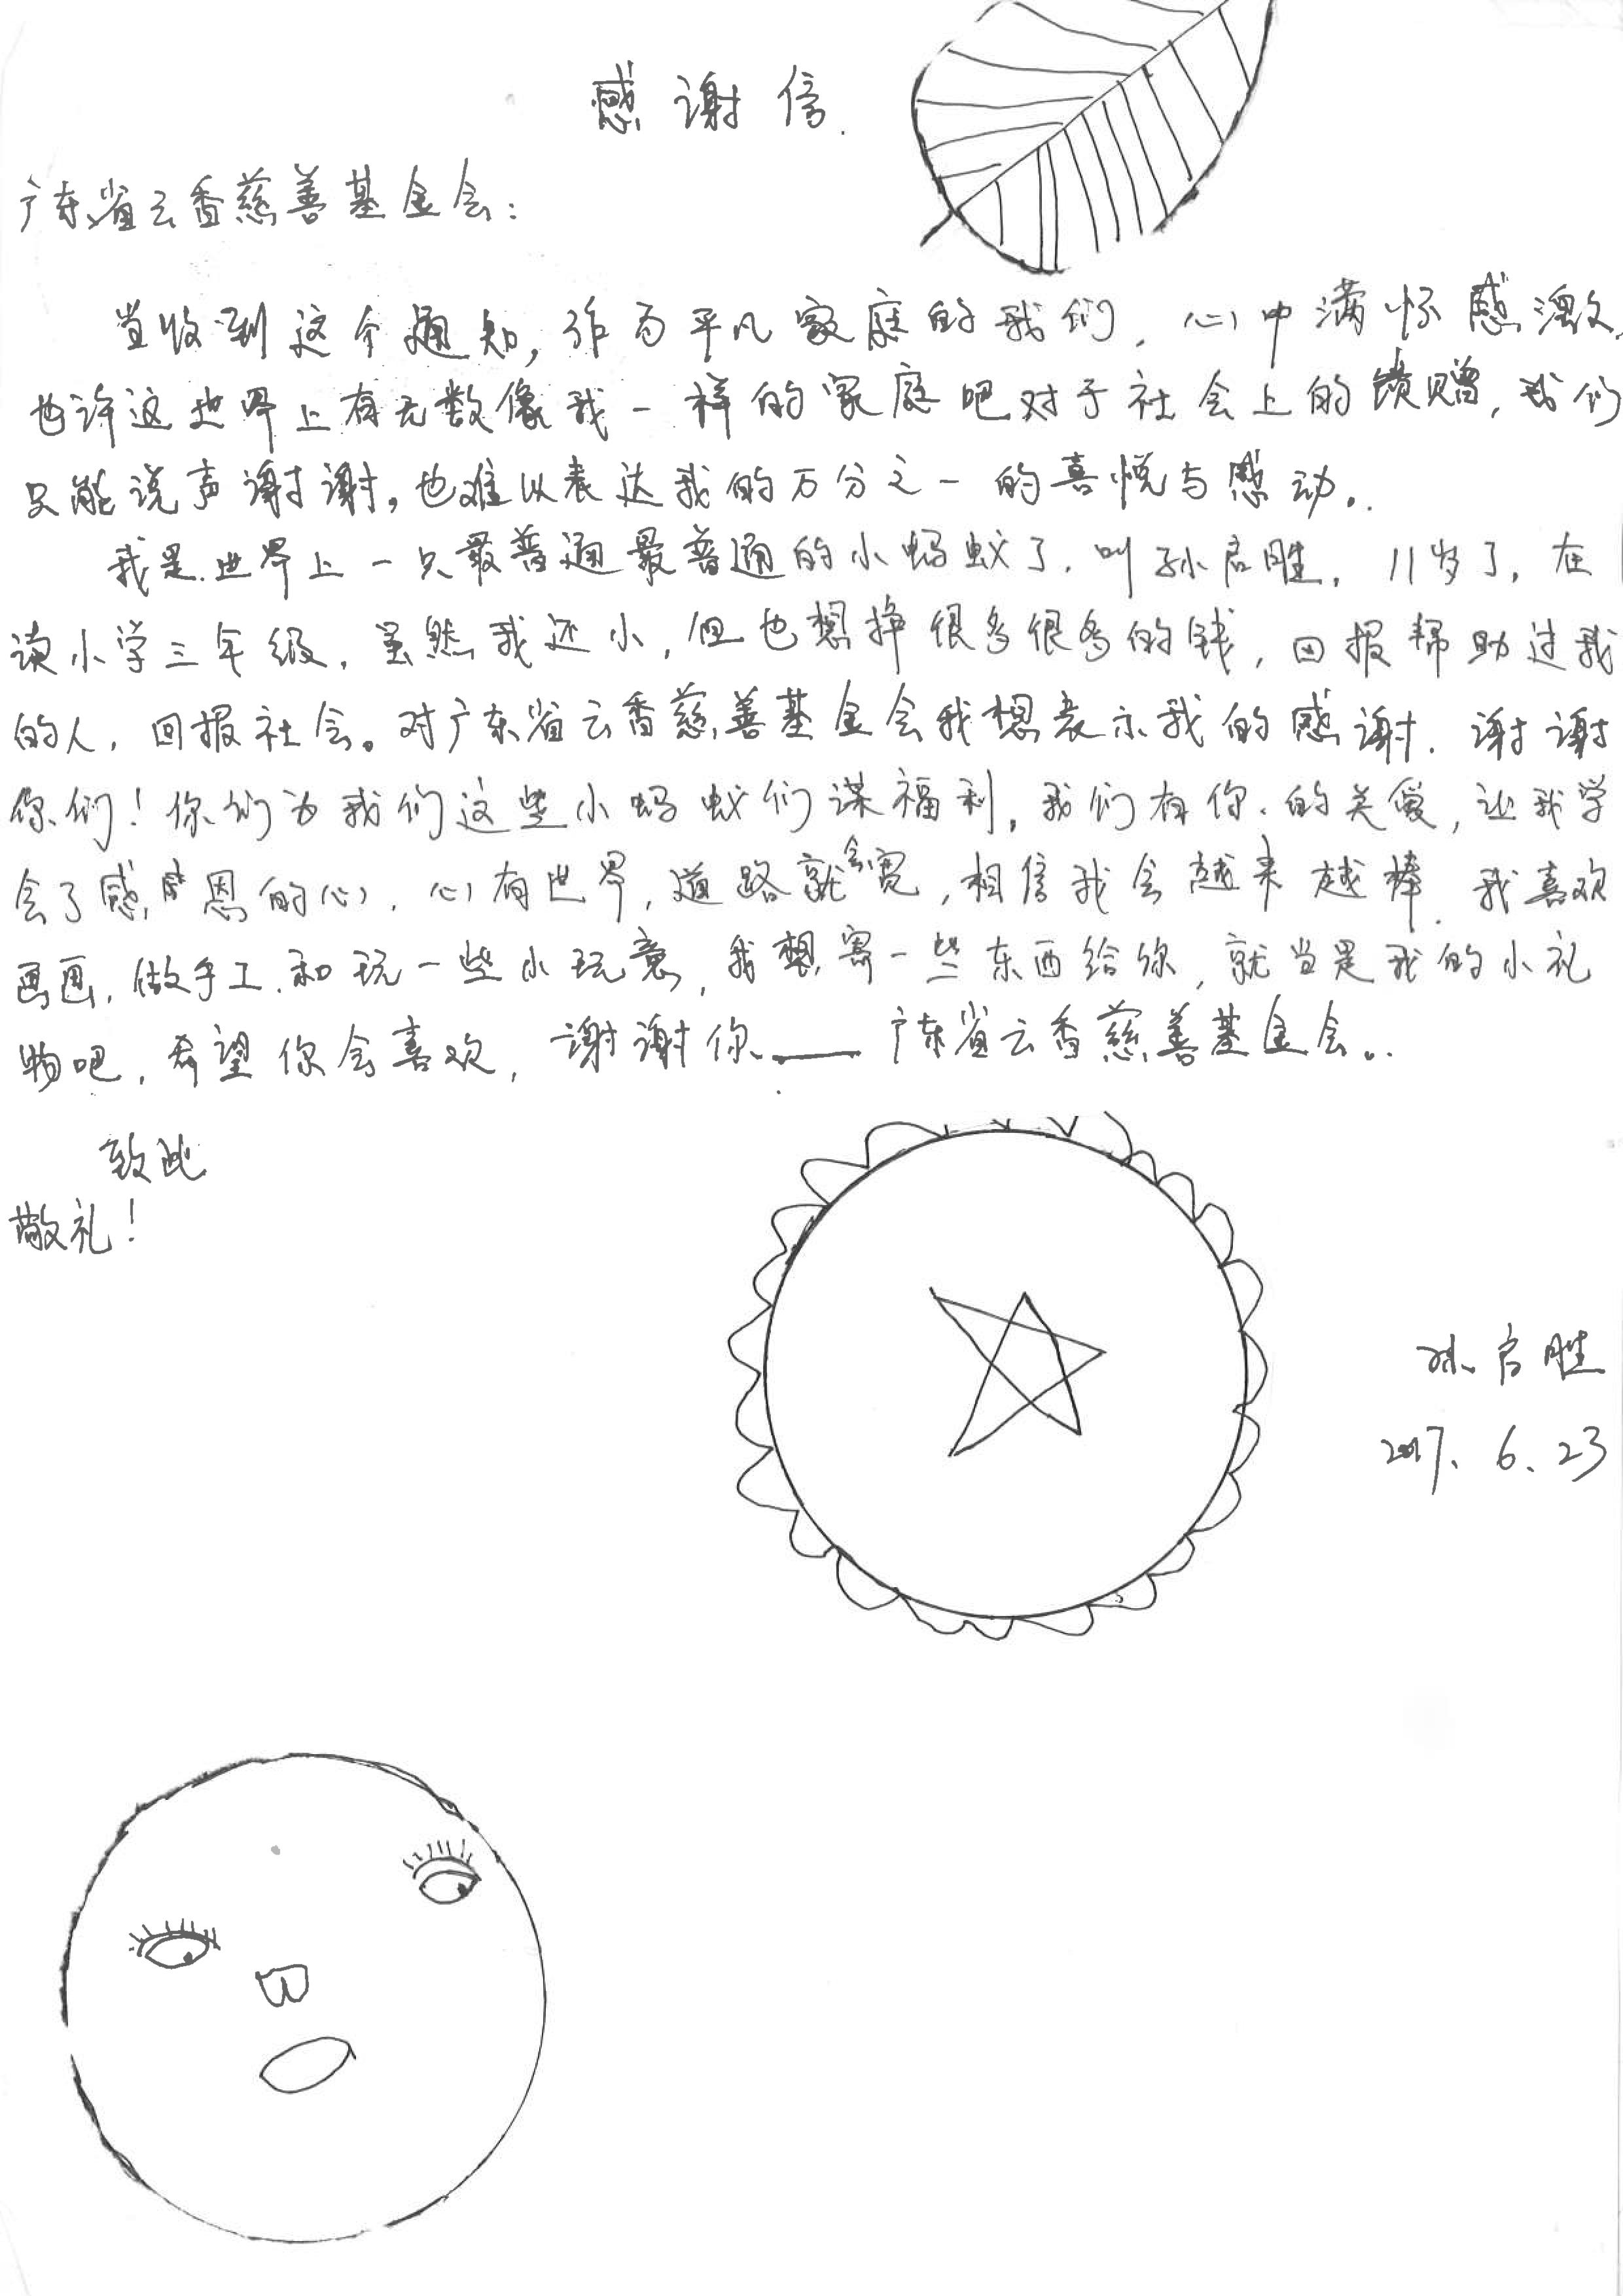 感谢信.
广东省云香慈善基金会:
当收到这个通知,作为平凡家庭的我们,心中满怀感激,
也许这世界上有无数像我一样的家庭吧对于社会上的馈赠,我们
只能说声谢谢。也难以表达我的万分之一的喜悦与感动。
我是世界上一只最普通最普通的小蚂蚁了.叫孙启胜,11岁了,在
读小学三年级,虽然我还小,但也想挣很多很多的钱,回报帮助过我
的人,回报社会。对广东省云香慈善基金会我想表示我的感谢.谢谢
你们!你们为我们这些小蚂蚁们谋福利,我们有你的关爱,让我学
会了感恩的心,心有世界,道路就会宽,相信我会越来越棒.我喜欢
画画,做手工.和玩一些小玩意,我想寄一些东西给你,就当是我的小礼
物吧,希望你会喜欢,谢谢你——广东省云香慈善基金会。
致此
敬礼!
孙启胜
2017.6.23